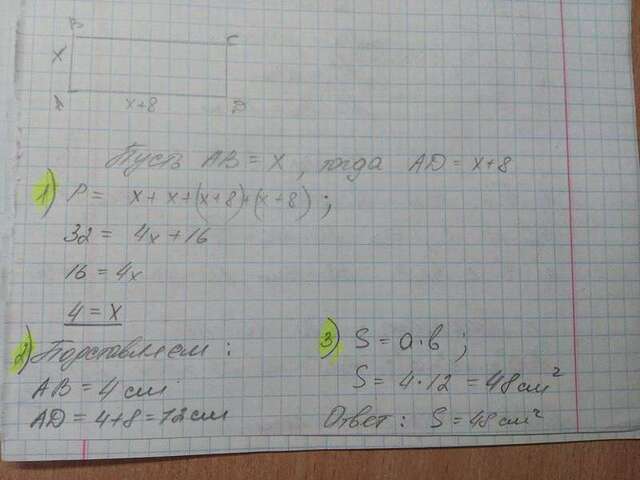 B
C
x
A
x+8
D
Пусть AB = x, тогда AD = x+8
1) P = x + x + (x+8) + (x+8);
32 = 4x + 16
16 = 4x
4 = x
2) Подставляем:
AB = 4 см
AD = 4+8 = 12 см
3) S = a·b;
S = 4·12 = 48 см²
Ответ: S = 48 см²